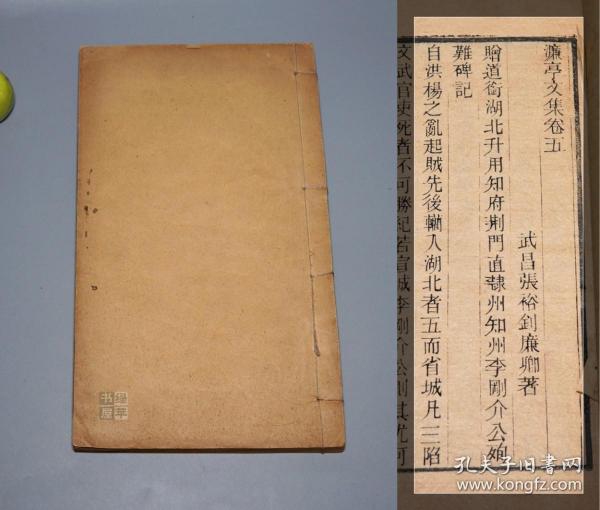 濂亭文集卷五
武昌張裕釗廉卿著
贈道銜湖北升用知府荆門直隸州知州李剛介公殉
難碑記
自洪楊之亂起賊先後躪入湖北者五而省城凡三陷
文武官吏死者不可勝紀若官城李剛介公則其尤可
孔夫子旧書网
www.kongfz.com